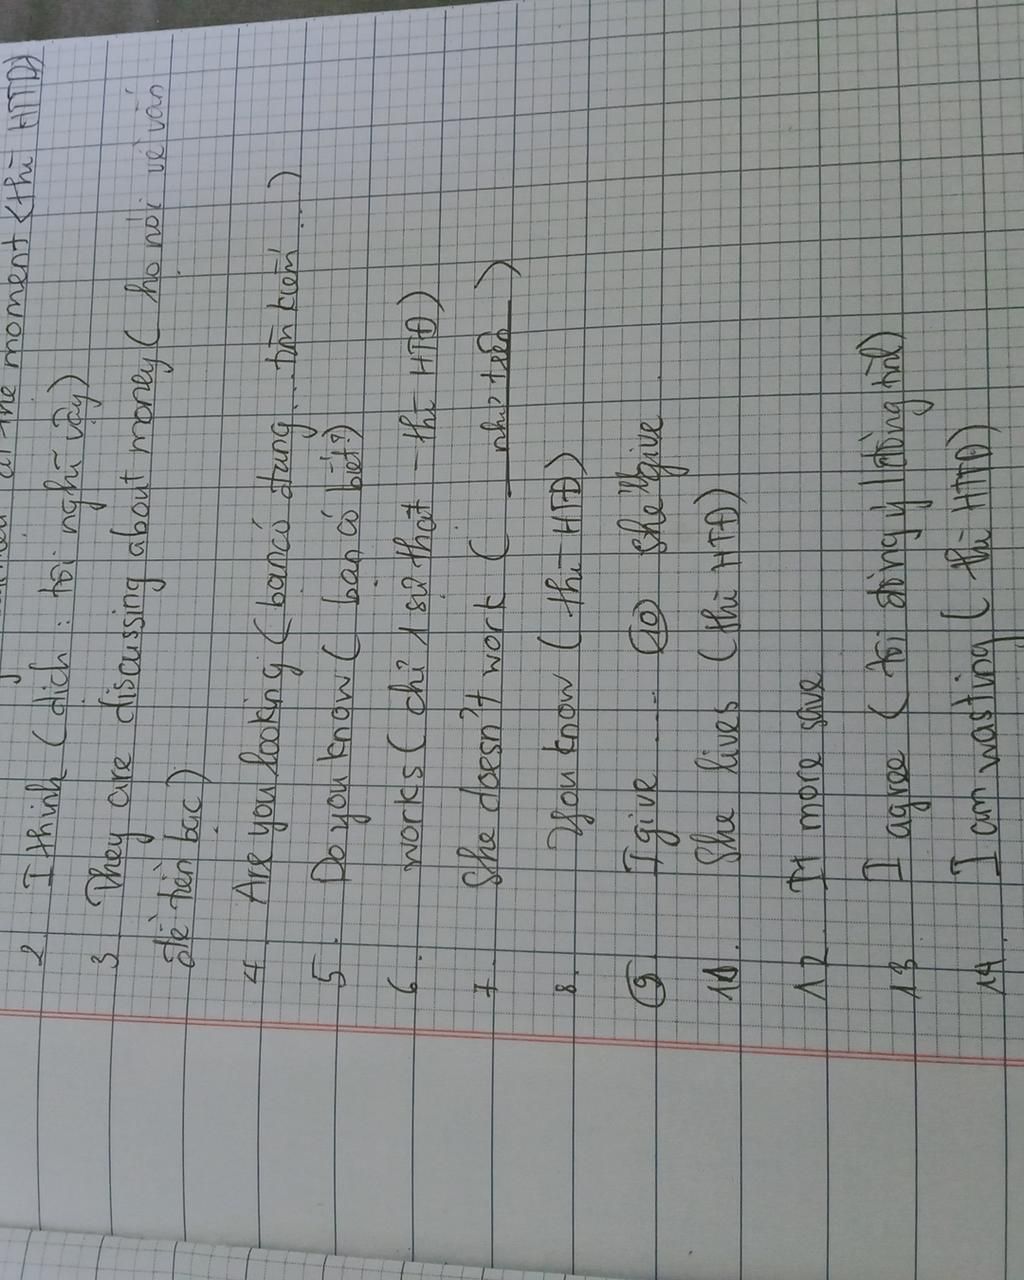 at the moment (thì HTTD)
2. I think (dịch: tôi nghĩ vậy)
3 They are discussing about money ( họ nói về vấn
đề tiền bạc)
4 Are you looking (bạn có đang ... tìm kiếm ...)
5. Do you know ( bạn có biết?)
6. works ( chỉ 1 sự thật - thì HTĐ)
7 She doesn't work ( như trên )
8. you know ( thì HTĐ)
9 I give ... 10 she give
11. She lives (thì HTĐ)
12. It more save
13 I agree ( tôi đồng ý / đồng tình)
14. I am wasting ( thì HTTD)